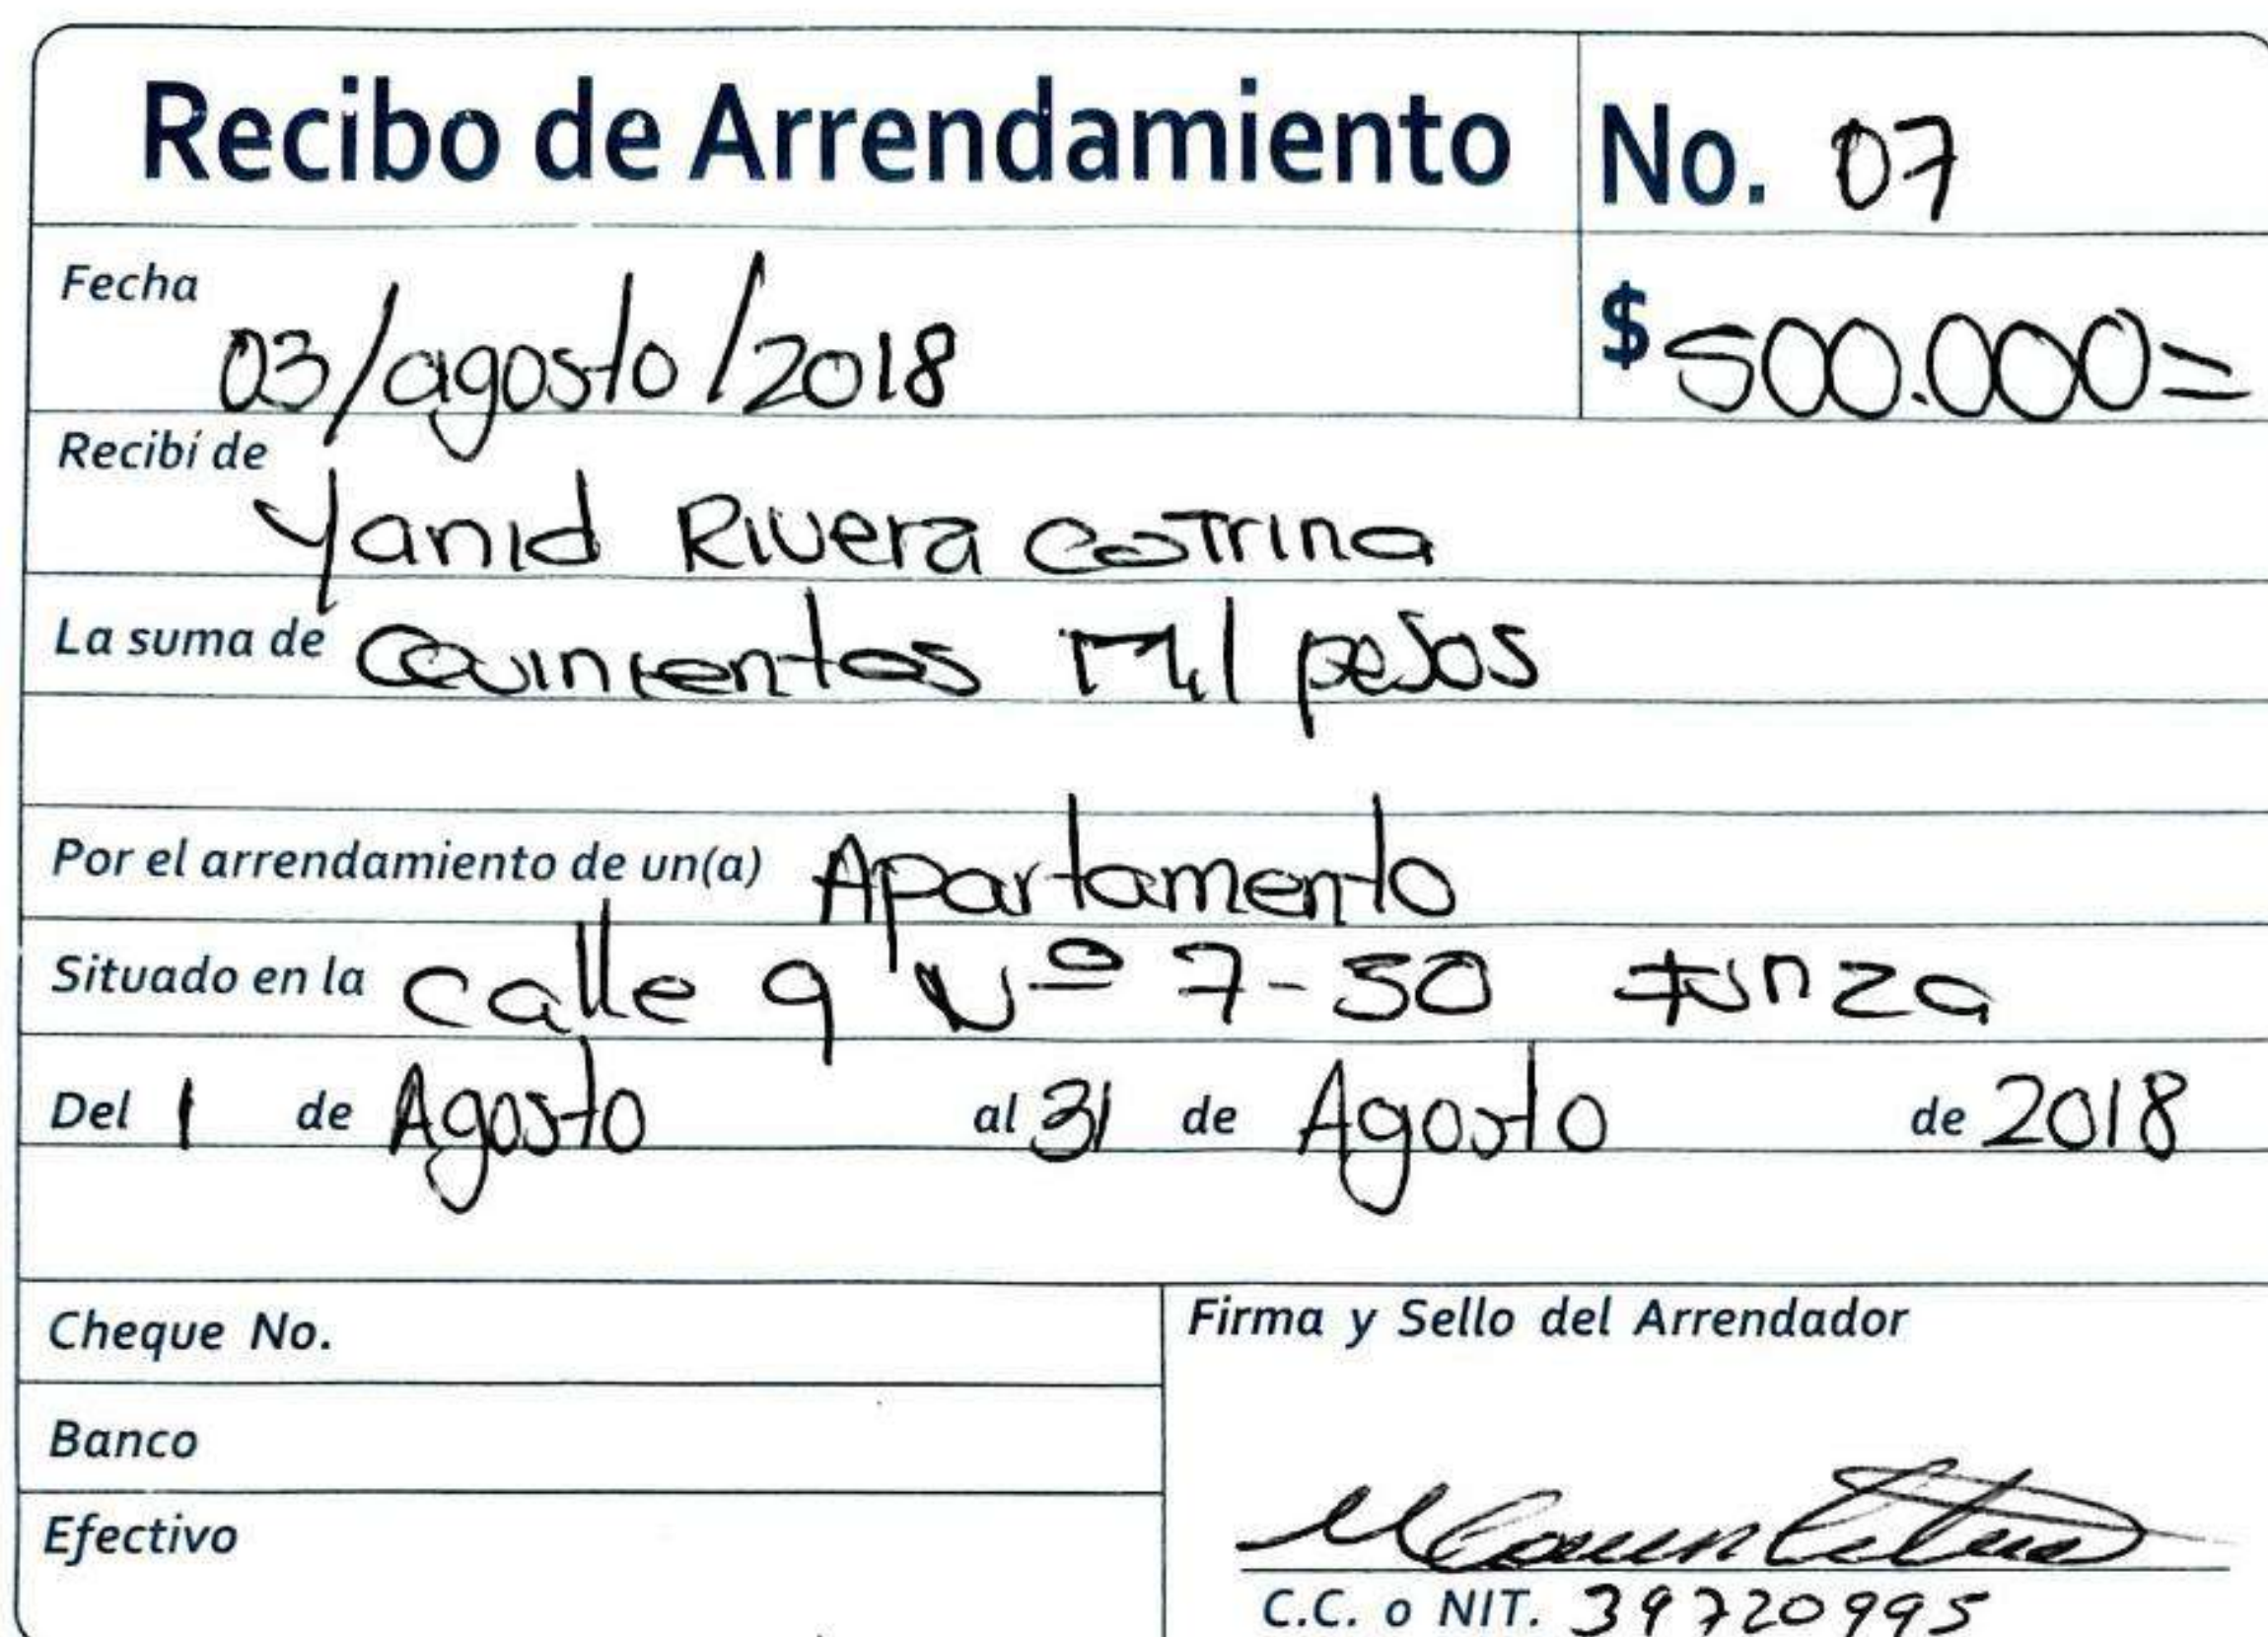 Recibo de Arrendamiento No. 07
Fecha 03/agosto/2018 $ 500.000=
Recibí de Yanid Rivera Cotrina
La suma de Quinientos Mil pesos
Por el arrendamiento de un(a) Apartamento
Situado en la calle 9 Nº 7-50 funza
Del 1 de Agosto al 31 de Agosto de 2018
Cheque No.
Firma y Sello del Arrendador
Banco
Efectivo
C.C. o NIT. 39720995